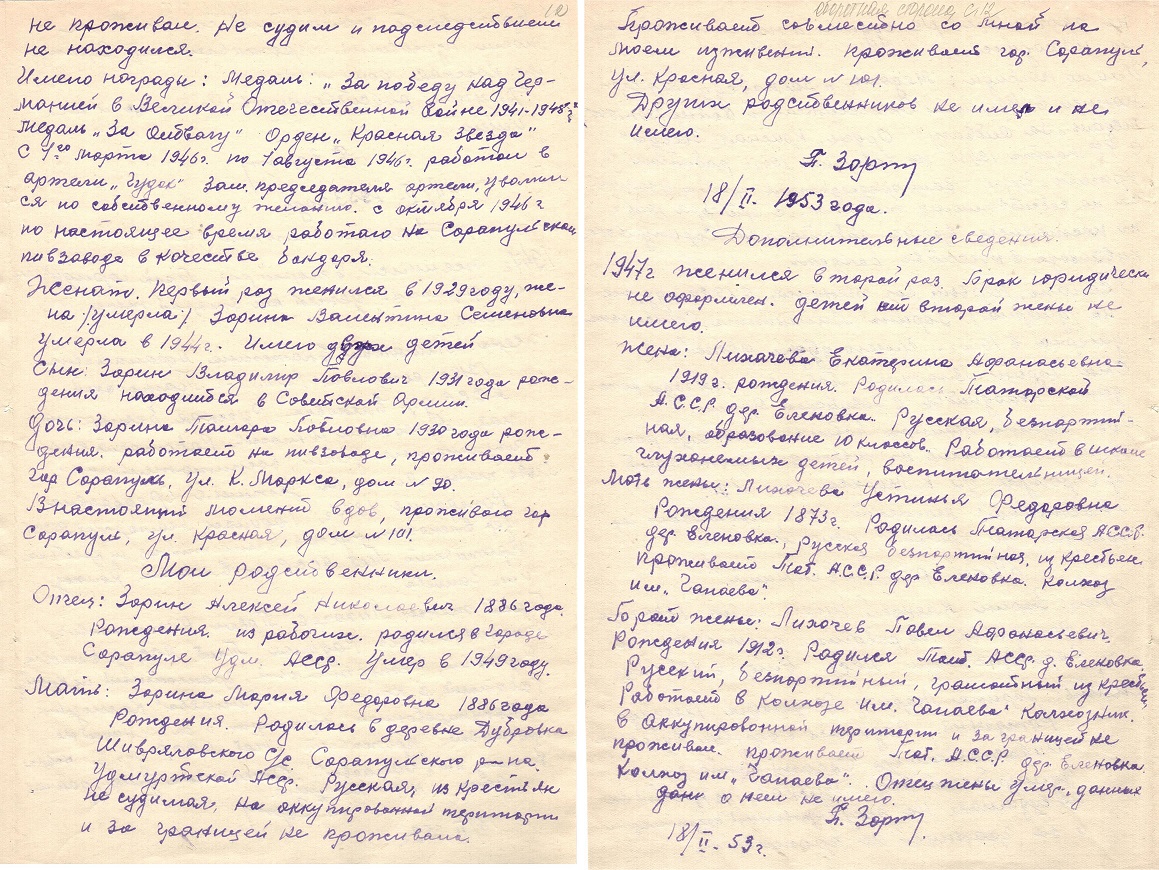 12
не проживал. Не судим и под следствием
не находился.
Имею награды: Медаль: „За победу над Гер-
манией в Великой Отечественной войне 1941-1945г.г."
медаль „За отвагу" Орден „Красная Звезда"
С 1го марта 1946г. по 1 августа 1946г. работал в
артели „Гудок" Зам. председателя артели, уволил-
ся по собственному желанию. С октября 1946г
по настоящее время работаю на Сарапульском
пивзаводе в качестве бондаря.
Женат. Первый раз женился в 1929 году, же-
на /умерла/ Зорина Валентина Семеновна
умерла в 1944г. Имею двух детей
Сын: Зорин Владимир Павлович 1931 года рож-
дения находится в Советской Армии.
Дочь: Зорина Тамара Павловна 1930 года рож-
дения. работает на пивзаводе, проживает
гор Сарапуль, ул. К. Маркса, дом № 90.
В настоящий момент вдов, проживаю гор
Сарапуль, ул. Красная, дом № 101.
Мои родственники.
Отец: Зорин Алексей Николаевич 1886 года
рождения. из рабочих. родился в городе
Сарапуле Удм. АССР. Умер в 1949 году.
Мать: Зорина Мария Федоровна 1886 года
рождения. Родилась в деревне Дубровка
Шивряловского С/с. Сарапульского р-на.
Удмуртской АССР. Русская, из крестьян
не судимая, на оккупированной территории
и за границей не проживала.
оборотная сторона с. 12
Проживает совместно со мной на
моем иждевени. проживает гор. Сарапуль,
ул. Красная, дом № 101.
Других родственников не имел и не
имею.
П. Зорин
18/II. 1953 года.
Дополнительные сведения.
1947г женился второй раз. Брак юридически
не оформлен. детей от второй жены не
имею.
Жена: Лихачева Екатерина Афанасьевна
1919г. рождения. Родилась Татарской
А.С.С.Р. дер. Еленовка. Русская, беспартий-
ная, образование 10 классов. Работает в школе
глухонемых детей, воспитательницей.
Мать жены: Лихачева Устинья Федоровна
Рождения 1873г. Родилась Татарская АССР.
дер. Еленовка., русская беспартийная, из крестьян
проживает Тат. А.С.С.Р. дер. Еленовка. Колхоз
им. „Чапаева".
Брат жены: Лихачев Павел Афанасьевич
рождения 1912г. Родился Тат. АССР. д. Еленовка.
Русский, беспартийный, грамотный из крестьян,
Работает в колхозе им. Чапаева" Колхозник.
в Аккупированной територии и за границей не
проживал. проживает Тат. А.С.С.Р. дер. Еленовка.
Колхоз им „Чапаева". Отец жены умер, данных
о нем не имею.
П. Зорин
18/II. 53г.